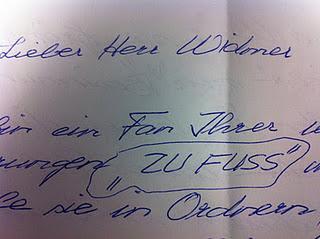 Lieber Herr Widmer
bin ein Fan Ihrer
rungen „ZU FUSS"
sie in Ordnern,